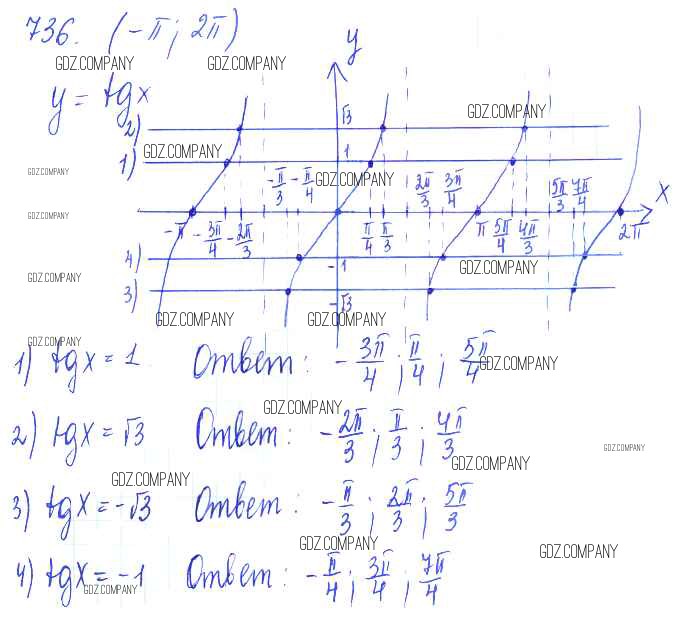 736. (-π; 2π)
GDZ.COMPANY GDZ.COMPANY
y = tgx
y
√3
GDZ.COMPANY
2)
1
1)
GDZ.COMPANY
GDZ.COMPANY
GDZ.COMPANY
-π/3 -π/4 2π/3 3π/4 5π/3 7π/4
x
GDZ.COMPANY
-π -3π/4 -2π/3 π/4 π/3 π 5π/4 4π/3 2π
4)
-1
GDZ.COMPANY
GDZ.COMPANY
3)
-√3
GDZ.COMPANY GDZ.COMPANY
GDZ.COMPANY
1) tgx = 1 Ответ: -3π/4; π/4; 5π/4
GDZ.COMPANY
GDZ.COMPANY
2) tgx = √3 Ответ: -2π/3; π/3; 4π/3
GDZ.COMPANY
GDZ.COMPANY
GDZ.COMPANY
3) tgx = -√3 Ответ: -π/3; 2π/3; 5π/3
GDZ.COMPANY
GDZ.COMPANY
4) tgx = -1 Ответ: -π/4; 3π/4; 7π/4
GDZ.COMPANY